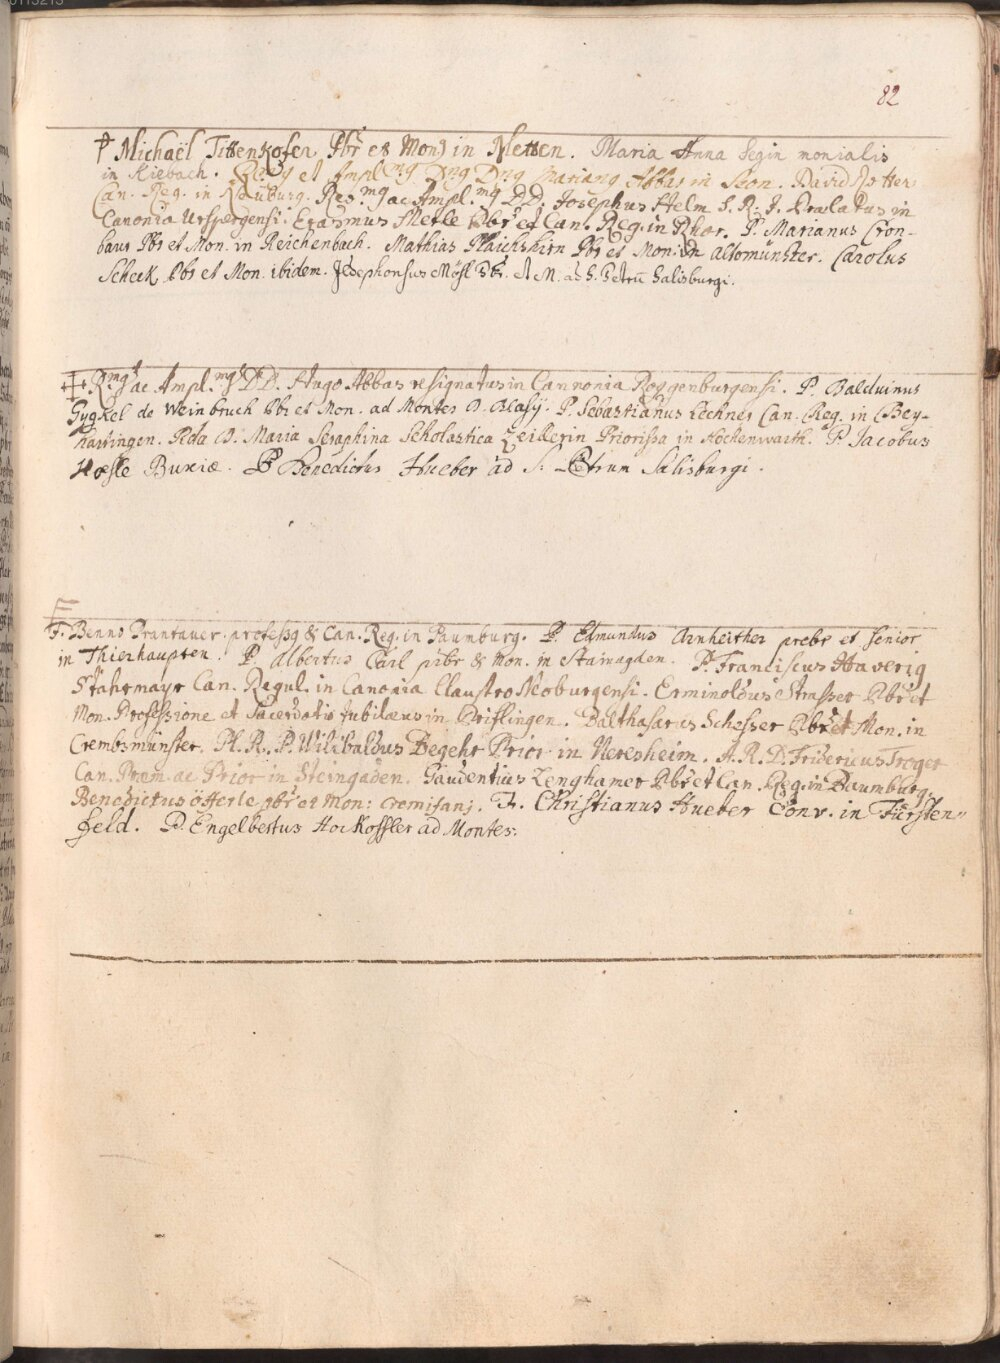 82
† Michaël Tittenkofer Pbr et Mon9 in Metten. Maria Anna Segin monialis
in Kiebach. et Ampl.m9 Dn9 Dn9 Marian9 Abbas in Seon. David
Can. Reg. in Neuburg. Res.m9 ac Ampl.m9 DD. Josephus Helm S. R. I. Prælatus in
Canonia Urspergensi. Erasmus Merle Pbr et Can. Reg. in Rhor. P. Marianus Cron-
baur Pbr et Mon. in Reichenbach. Mathias Plaichshirn Pbr et Mon. in Altomünster. Carolus
Scheck Pbr et Mon. ibidem. Jldephonsus Mösl Pbr. et M. ad S. Petrū Salisburgi.
R.m9 ac Ampl.m9 DD. Hugo Abbas resignatus in Cannonia Roggenburgensi. P. Balduinus
Gygkel de Weinbruch Pbr et Mon. ad Montes D. Blasÿ. P. Sebastianus Lechner Can. Reg. in Bey-
hartingen. Rda D. Maria Seraphina Scholastica Zeillerin Priorissa in Hochenwarth. P. Jacobus
Hösle Buxiæ. P Benedictus Hueber ad S. Petrum Salisburgi.
F. Benno Prantauer profess9 & Can. Reg. in Paumburg. P. Edmundus Arnheither prebr et Senior
in Thierhaupten. P. Albertus Carl prbr & Mon. in Stainagden. P. Franciscus Xaveri9
Stahrmayr Can. Regul. in Canonia Claustro Neoburgensi. Erminoldus Strasser Pbr et
Mon. Professione et Sacerdotio Jubilæus in Priflingen. Balthasarus Schesser Pbr et Mon. in
Crembsmünster. Pl. R. P. Wilibaldus Begehr Prior in Neresheim. A. R. D. Fridericus Troger
Can. Præm. ac Prior in Steingaden. Gaudentius Lenghamer Pbr et Can. Reg. in Baumburg.
Benedictus Öfferle pbr et Mon: Cremifanj. Fr. Christianus Hueber Conv. in Fürsten„
feld. P. Engelbertus Hockoffler ad Montes.